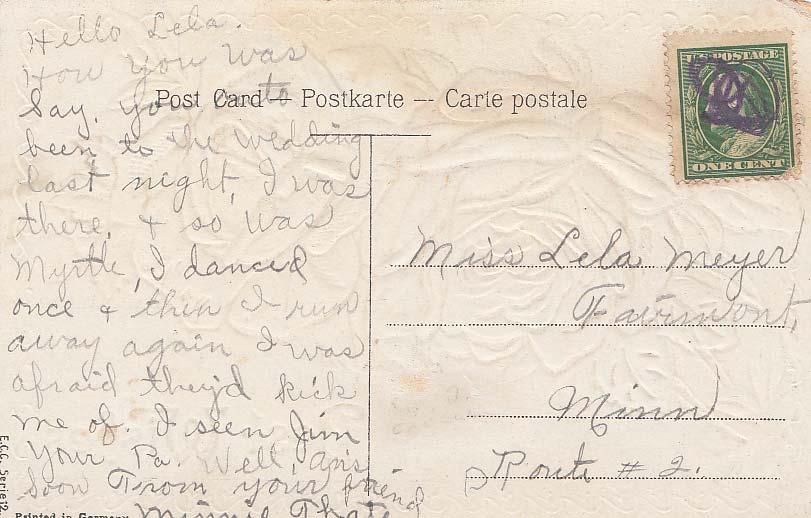 Hello Lela.
How you was
Say, you to
Post Card — Postkarte — Carte postale
been to the wedding
last night, I was
there, & so was
Myrtle, I danced
once & then I run
away again I was
afraid they'd kick
me of. I seen Jim
Your Pa. Well, ans
soon From your friend
Minnie
POSTAGE
ONE CENT
Miss Lela Meyer
Fairmont,
Minn
Route # 2.
E.C.C. Serie 12
Printed in Germany